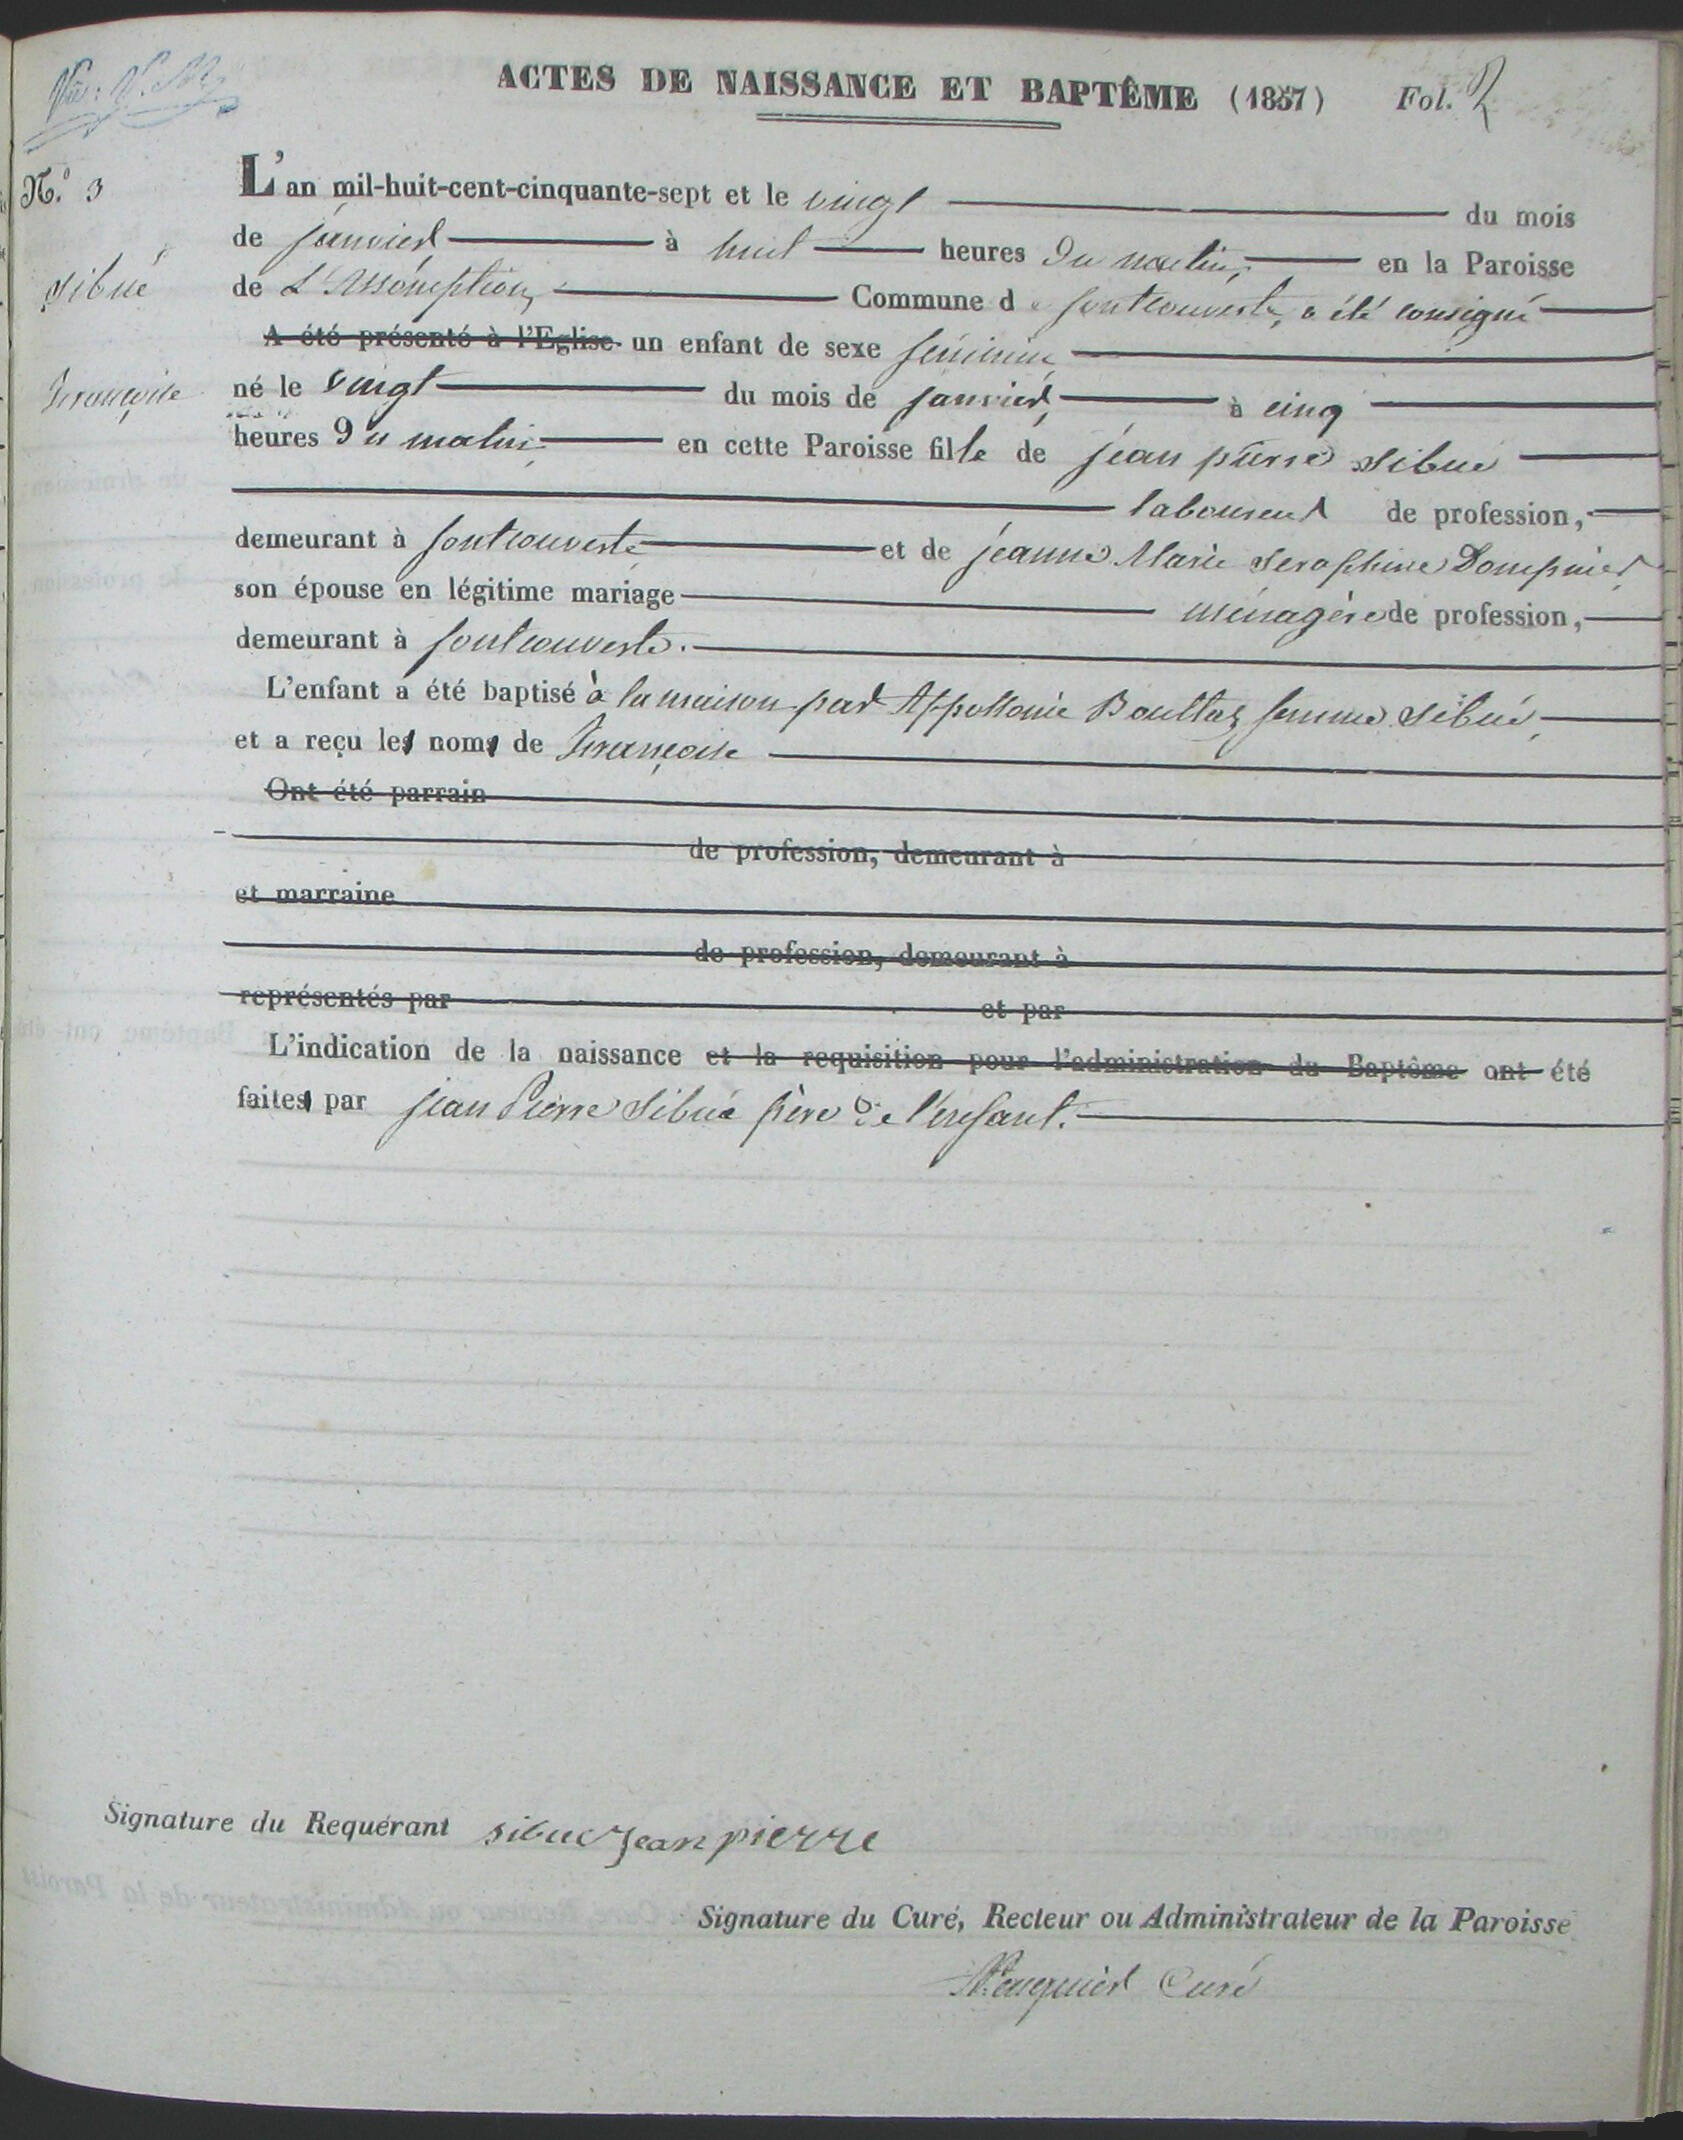 ACTES DE NAISSANCE ET BAPTÊME (1857) Fol. 2
Vu:
N.º 3
L'an mil-huit-cent-cinquante-sept et le vingt du mois
de janvier à huit heures du matin, en la Paroisse
Sibué
de L'Assomption, Commune de fontcouverte, a été consigné
A été présenté à l'Eglise un enfant de sexe féminin
Françoise
né le vingt du mois de janvier, à cinq
heures du matin en cette Paroisse fille de jean pierre Sibué
laboureur de profession,
demeurant à fontcouverte et de jeanne Marie Seraphine Dompnier
son épouse en légitime mariage ménagère de profession,
demeurant à fontcouverte.
L'enfant a été baptisé à la maison par Appollonie Boultaz femme Sibué,
et a reçu les noms de Françoise
Ont été parrain
de profession, demeurant à
et marraine
de profession, demeurant à
représentés par et par
L'indication de la naissance et la requisition pour l'administration du Baptême ont été
faites par jean Pierre Sibué père de l'enfant.
Signature du Requérant sibue jean pierre
Signature du Curé, Recteur ou Administrateur de la Paroisse
Curé